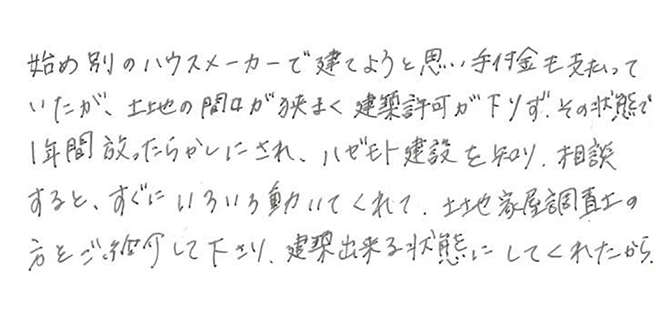 始め別のハウスメーカーで建てようと思い手付金も支払って
いたが、土地の間口が狭まく建築許可が下りず、その状態で
1年間放ったらかしにされ、ハゼモト建設を知り、相談
すると、すぐにいろいろ動いてくれて、土地家屋調査士の
方をご紹介して下さり、建築出来る状態にしてくれたから。